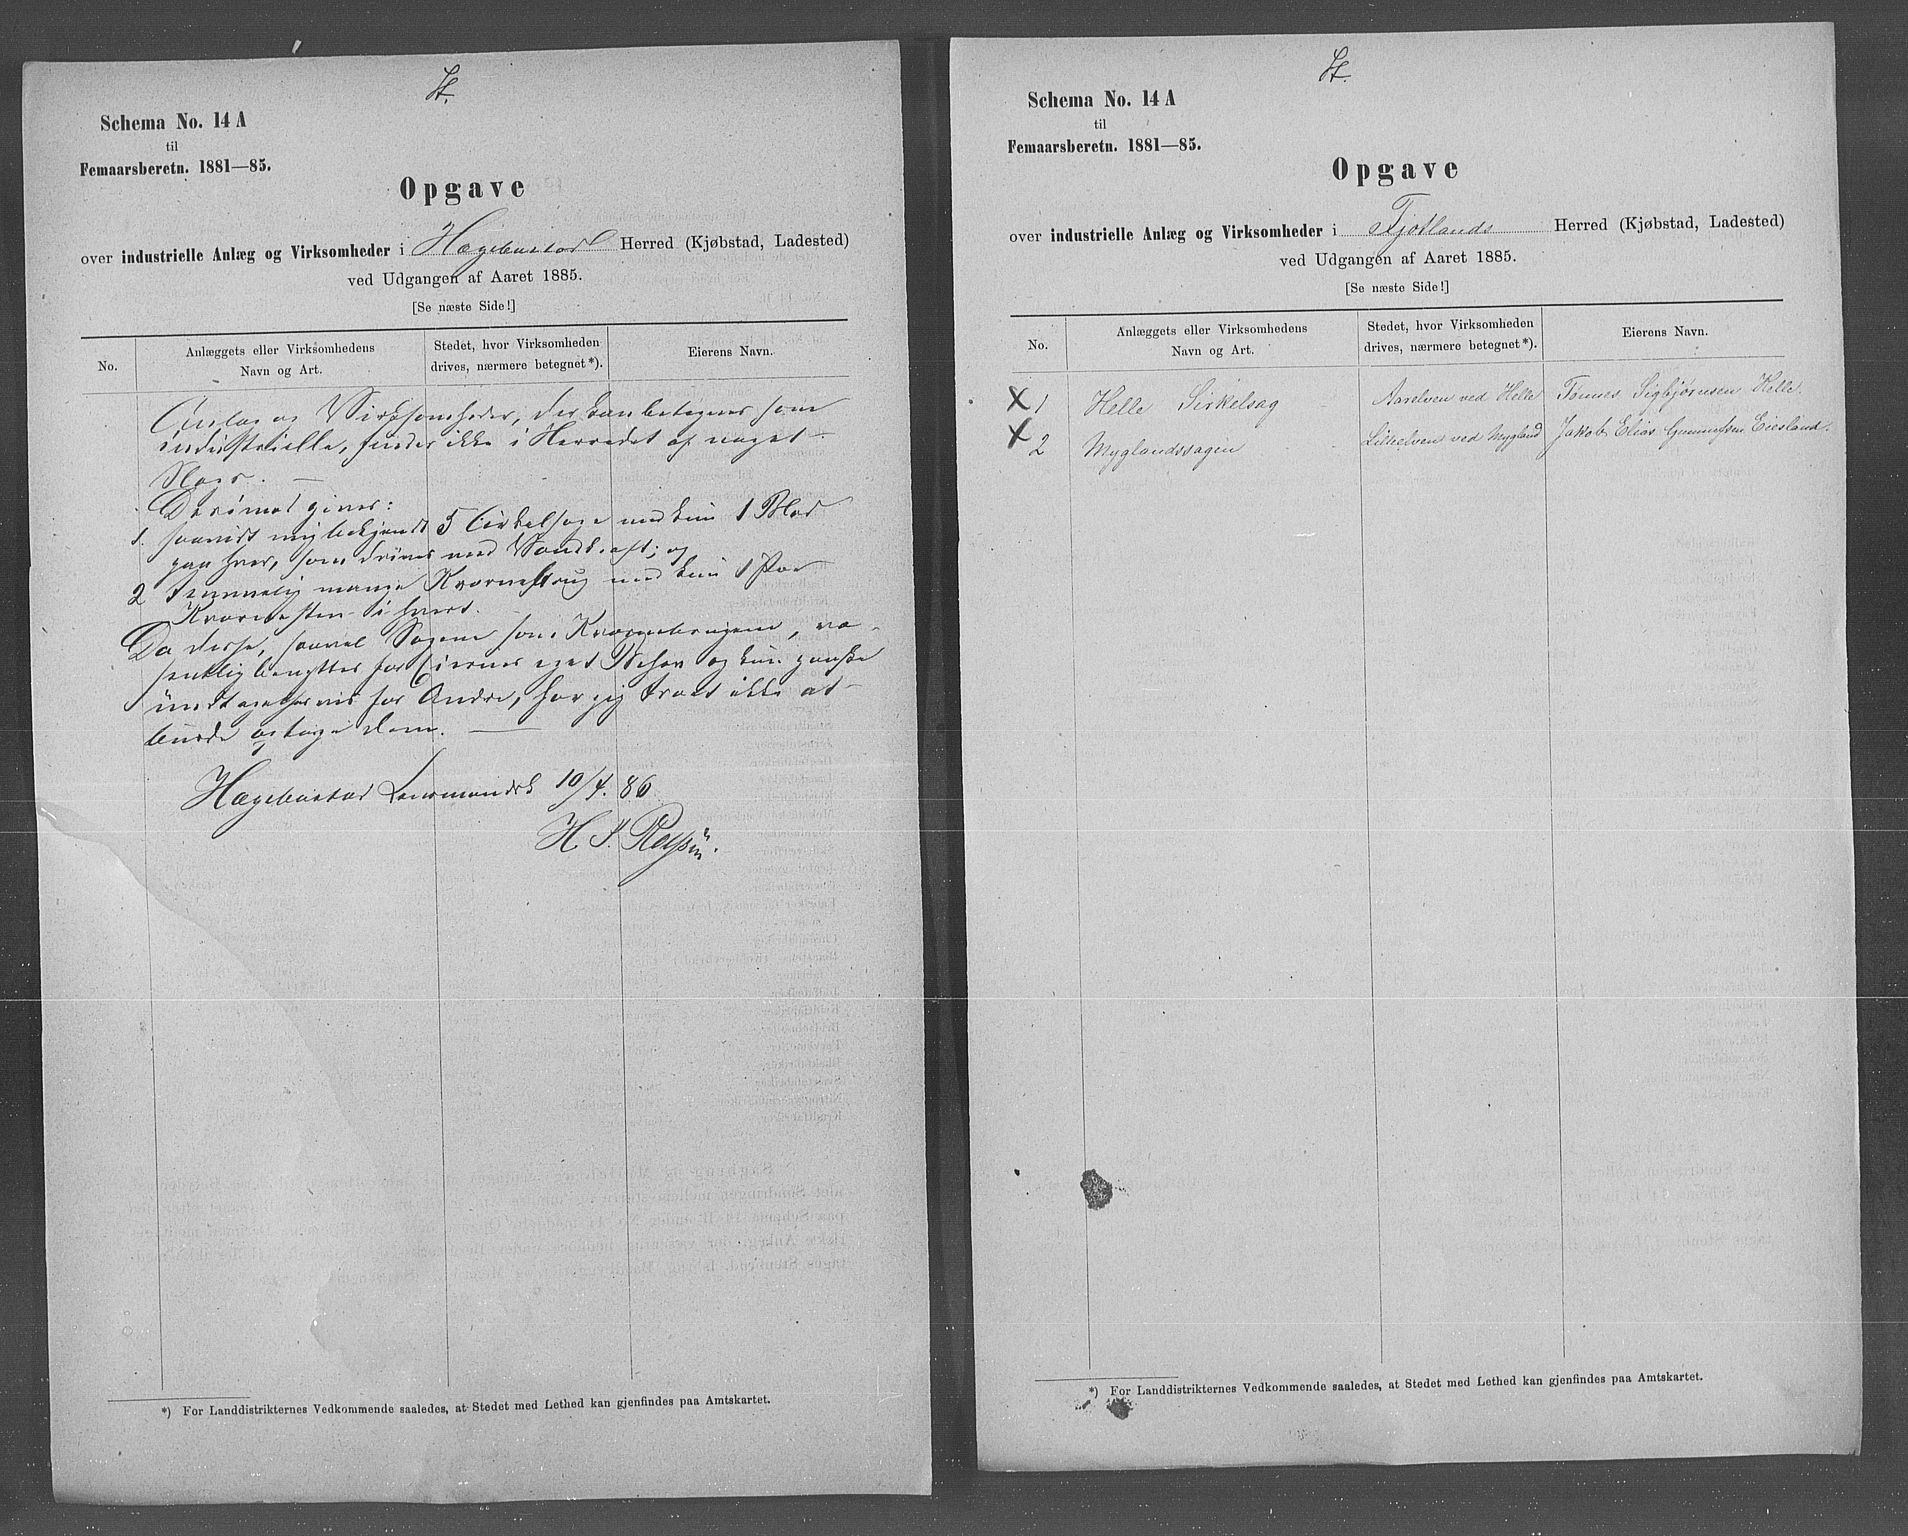 St.
Schema No. 14 A
til
Femaarsberetn. 1881—85.
Opgave
over industrielle Anlæg og Virksomheder i Hægebostad Herred (Kjøbstad, Ladested)
ved Udgangen af Aaret 1885.
[Se næste Side!]
No.
Anlæggets eller Virksomhedens
Navn og Art.
Stedet, hvor Virksomheden
drives, nærmere betegnet*).
Eierens Navn.
Anlæg og Virksomheder, der kan betegnes som
industrielle, findes ikke i Herredet af noget
Slags. —
Derimod gives:
1. saavidt mig bekjendt 5 Cirkelsage med kun 1 Blad
paa hver, som drives med Vandkraft; og
2 temmelig mange Kværnebrug med kun 1 Par
Kværnesten i hvert.
Da disse, saavel Sagene som Kværnebrugene, væ-
sentlig benyttes for Eiernes eget Behov og kun ganske
undtagelsesvis for Andre, har jeg troet ikke at
burde optage dem. —
Hægebostad Lensmandsk 10/4. 86
H. S.
*) For Landdistrikternes Vedkommende saaledes, at Stedet med Lethed kan gjenfindes paa Amtskartet.
St.
Schema No. 14 A
til
Femaarsberetn. 1881—85.
Opgave
over industrielle Anlæg og Virksomheder i Fjotlands Herred (Kjøbstad, Ladested)
ved Udgangen af Aaret 1885.
[Se næste Side!]
No.
Anlæggets eller Virksomhedens
Navn og Art.
Stedet, hvor Virksomheden
drives, nærmere betegnet*).
Eierens Navn.
x 1 Helle Sirkelsag Aarelven ved Helle Tønnes Sigbjørnsen Helle.
x 2 Myglandssagen Litleelven ved Mygland Jakob Elias Gunnufsen Eiesland.
*) For Landdistrikternes Vedkommende saaledes, at Stedet med Lethed kan gjenfindes paa Amtskartet.